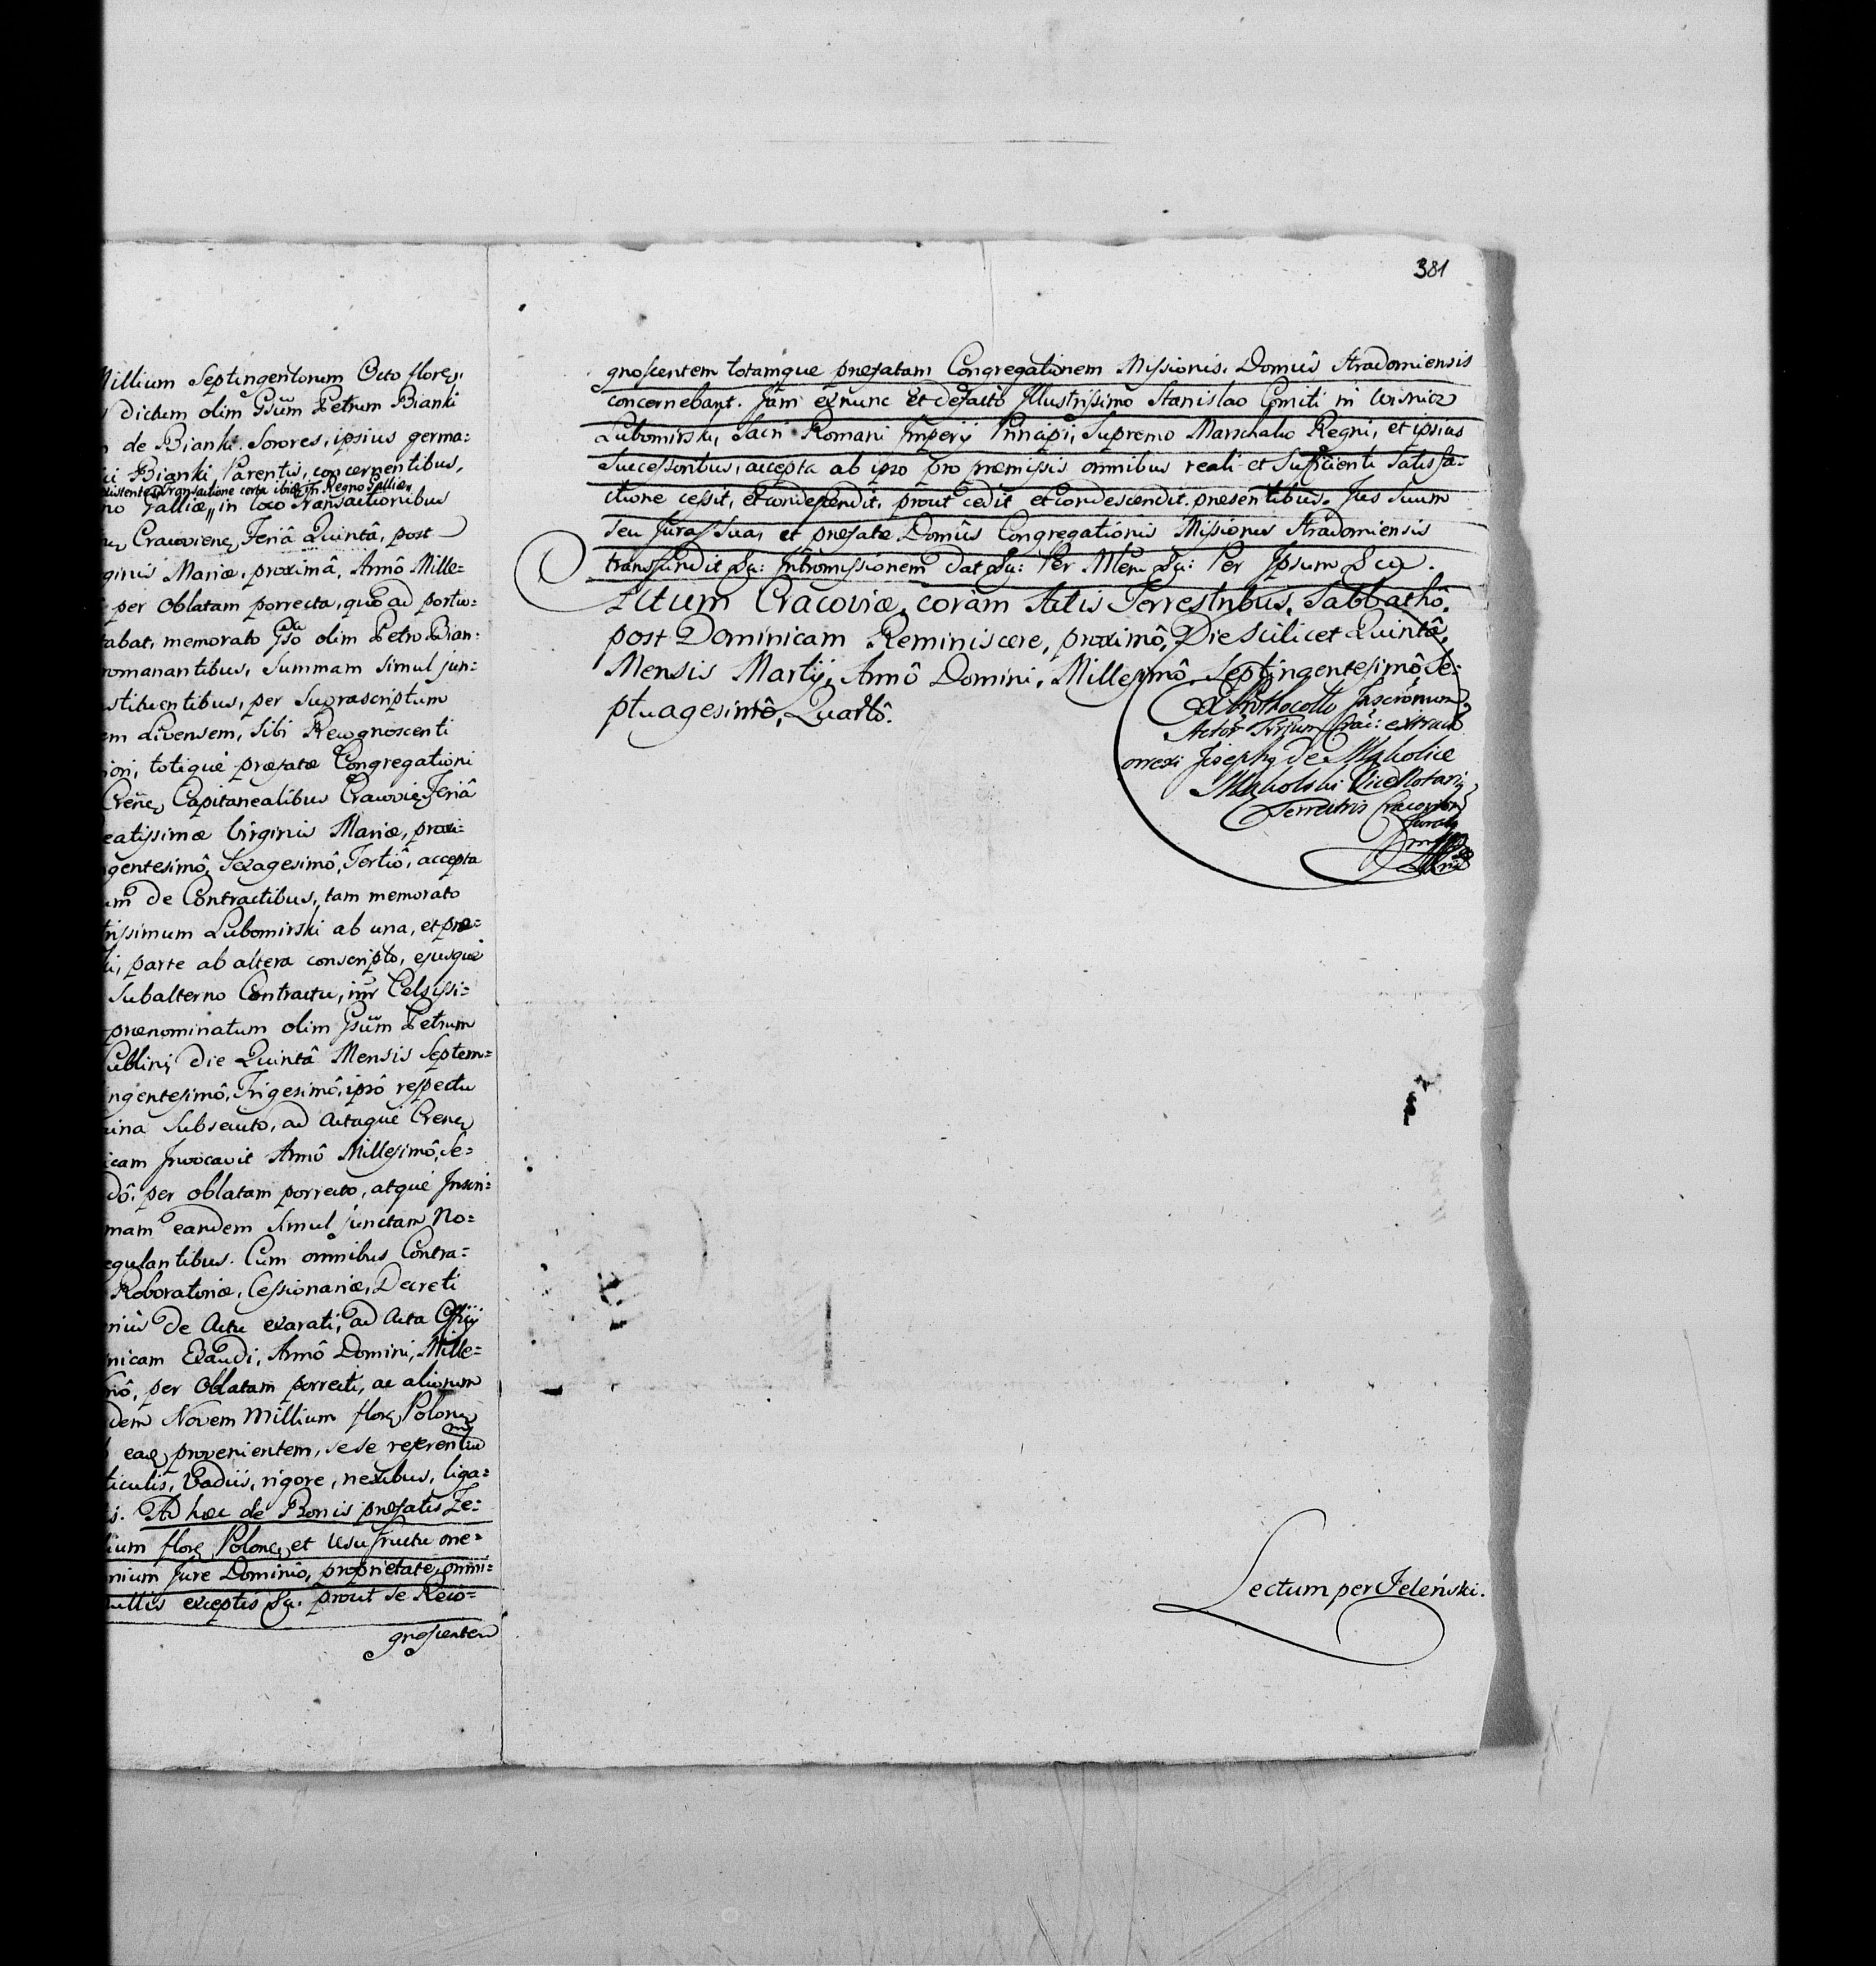 Millium Septingentorum Octo floreę,
dictum olim Gsum Petrum Bianki
de Bianki Sorores, ipsius germa=
Bianki Parentis, concernentibus,
Transactione certa ibidem in Regno Galliæ
Galliæ, in loco Transactionibus
Cracovieneę Feriâ Quintâ, post
ginis Mariæ, proximâ, Annô Mille=
per Oblatam porrecta, quo ad portio=
tabat, memorato Gso olim Petro Bian=
romanantibus, Summam simul jun=
stituentibus, per Suprascriptum
em Divensem, Sibi Recognoscenti
ioni, totique præfatæ Congregationi
Creneę Capitanealibus Cracoviæ Feriâ
eatissimæ Virginis Mariæ, proxi=
gentesimô, Sexagesimô, Tertiô, accepta
de Contractibus, tam memorato
trissimum Lubomirski ab una, et præ=
parte ab altera conscripto, ejusque
Subalterno Contractu, inr Celsissi=
prænominatum olim Gsum Petrum
Lublini, die Quintâ Mensis Septem=
ingentesimô, Trigesimô, ipsô respectu
Subsecuto, ad Actaque Creneę
icam Invocavit Annô Millesimô, Se=
dô, per oblatam porrecto, atque Inscri=
mam eandem Simul junctam No=
egulantibus. Cum omnibus Contra=
Roboratoriæ, Cessionariæ, Decreti
de Actu exarati, ad Acta
nicam Exaudi, Annô Domini, Mille=
mô, per Oblatam porrecti, ac aliorum
dem Novem Millium floreę Poloneę
eaq provenientem, sese referentiu
ticulis, Vadiis, rigore, nexibus, liga=
Ad hæc de Bonis præfatis Ze=
ium floreę Poloneę, et Usufructu one=
nium Jure Dominio, proprietate, omni=
nullis exceptis &c. prout se Reco=
gnoscentem
381
gnoscentem totamque præfatam Congregationem Missionis, Domûs Stradomiensis
concernebant. Jam exnunc et defacto Illustrissimo Stanislao Comiti in Wisnicz
Lubomirski, Sacri Romani Imperij Principi, Supremo Marschalco Regni, et ipsius
Successoribus, accepta ab ipso pro præmissis omnibus reali et Sufficienti Satisfa=
ctione cessit, et condescendit, prout cedit et condescendit præsentibus. Jus Suum
seu Jura Sua, et præfatæ Domûs Congregationis Missionis Stradomiensis
transfundit &c: Intromissionem dat &c: Per Mem &c: Per Ipsum &c.
Actum Cracoviæ, coram Actis Terrestribus, Sabbathô,
post Dominicam Reminiscere, proximô, Die Scilicet Quintâ,
Mensis Martij, Annô Domini, Millesimô, Septingentesimô, Se=
ptuagesimô, Quartô.
Ex Prothocollo Inscrõnum
Actor Trrium Crac: extract
correxi Josephq de Mąkolice
Mąkolski ViceNotariq
Terrestris Cracovien
Lectum per Jeleński.